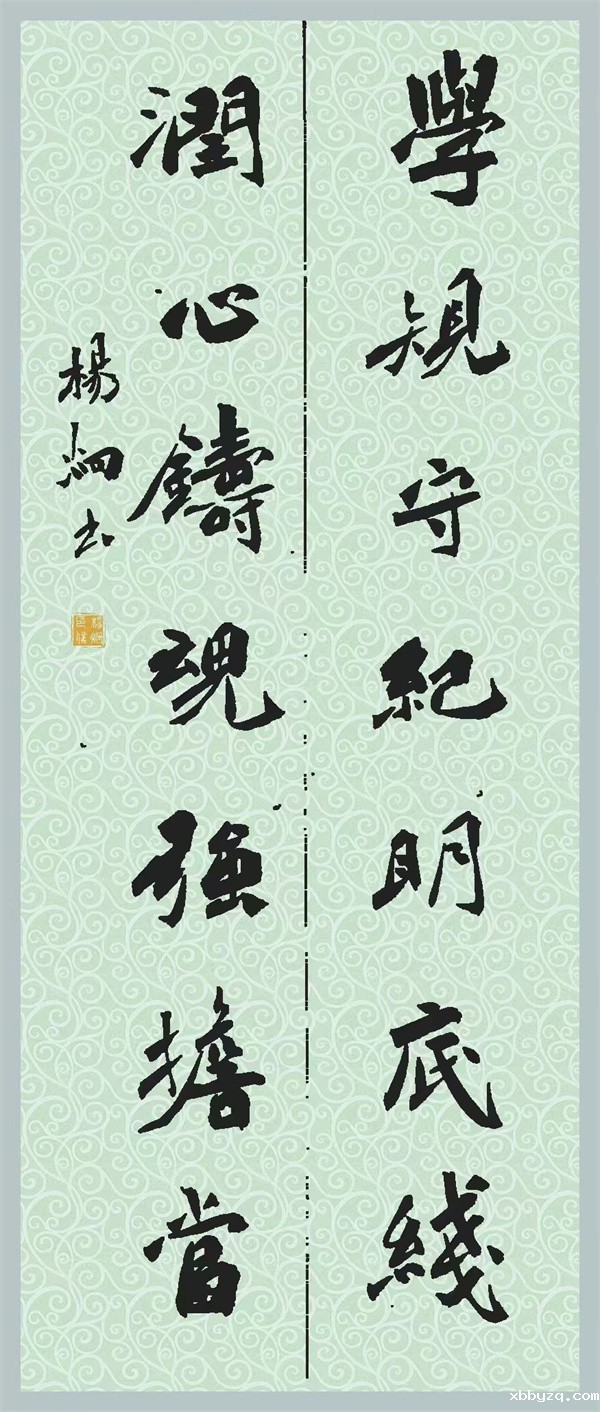 學規守紀明底綫
潤心鑄魂強擔當
楊炯书
xbbyzq.com